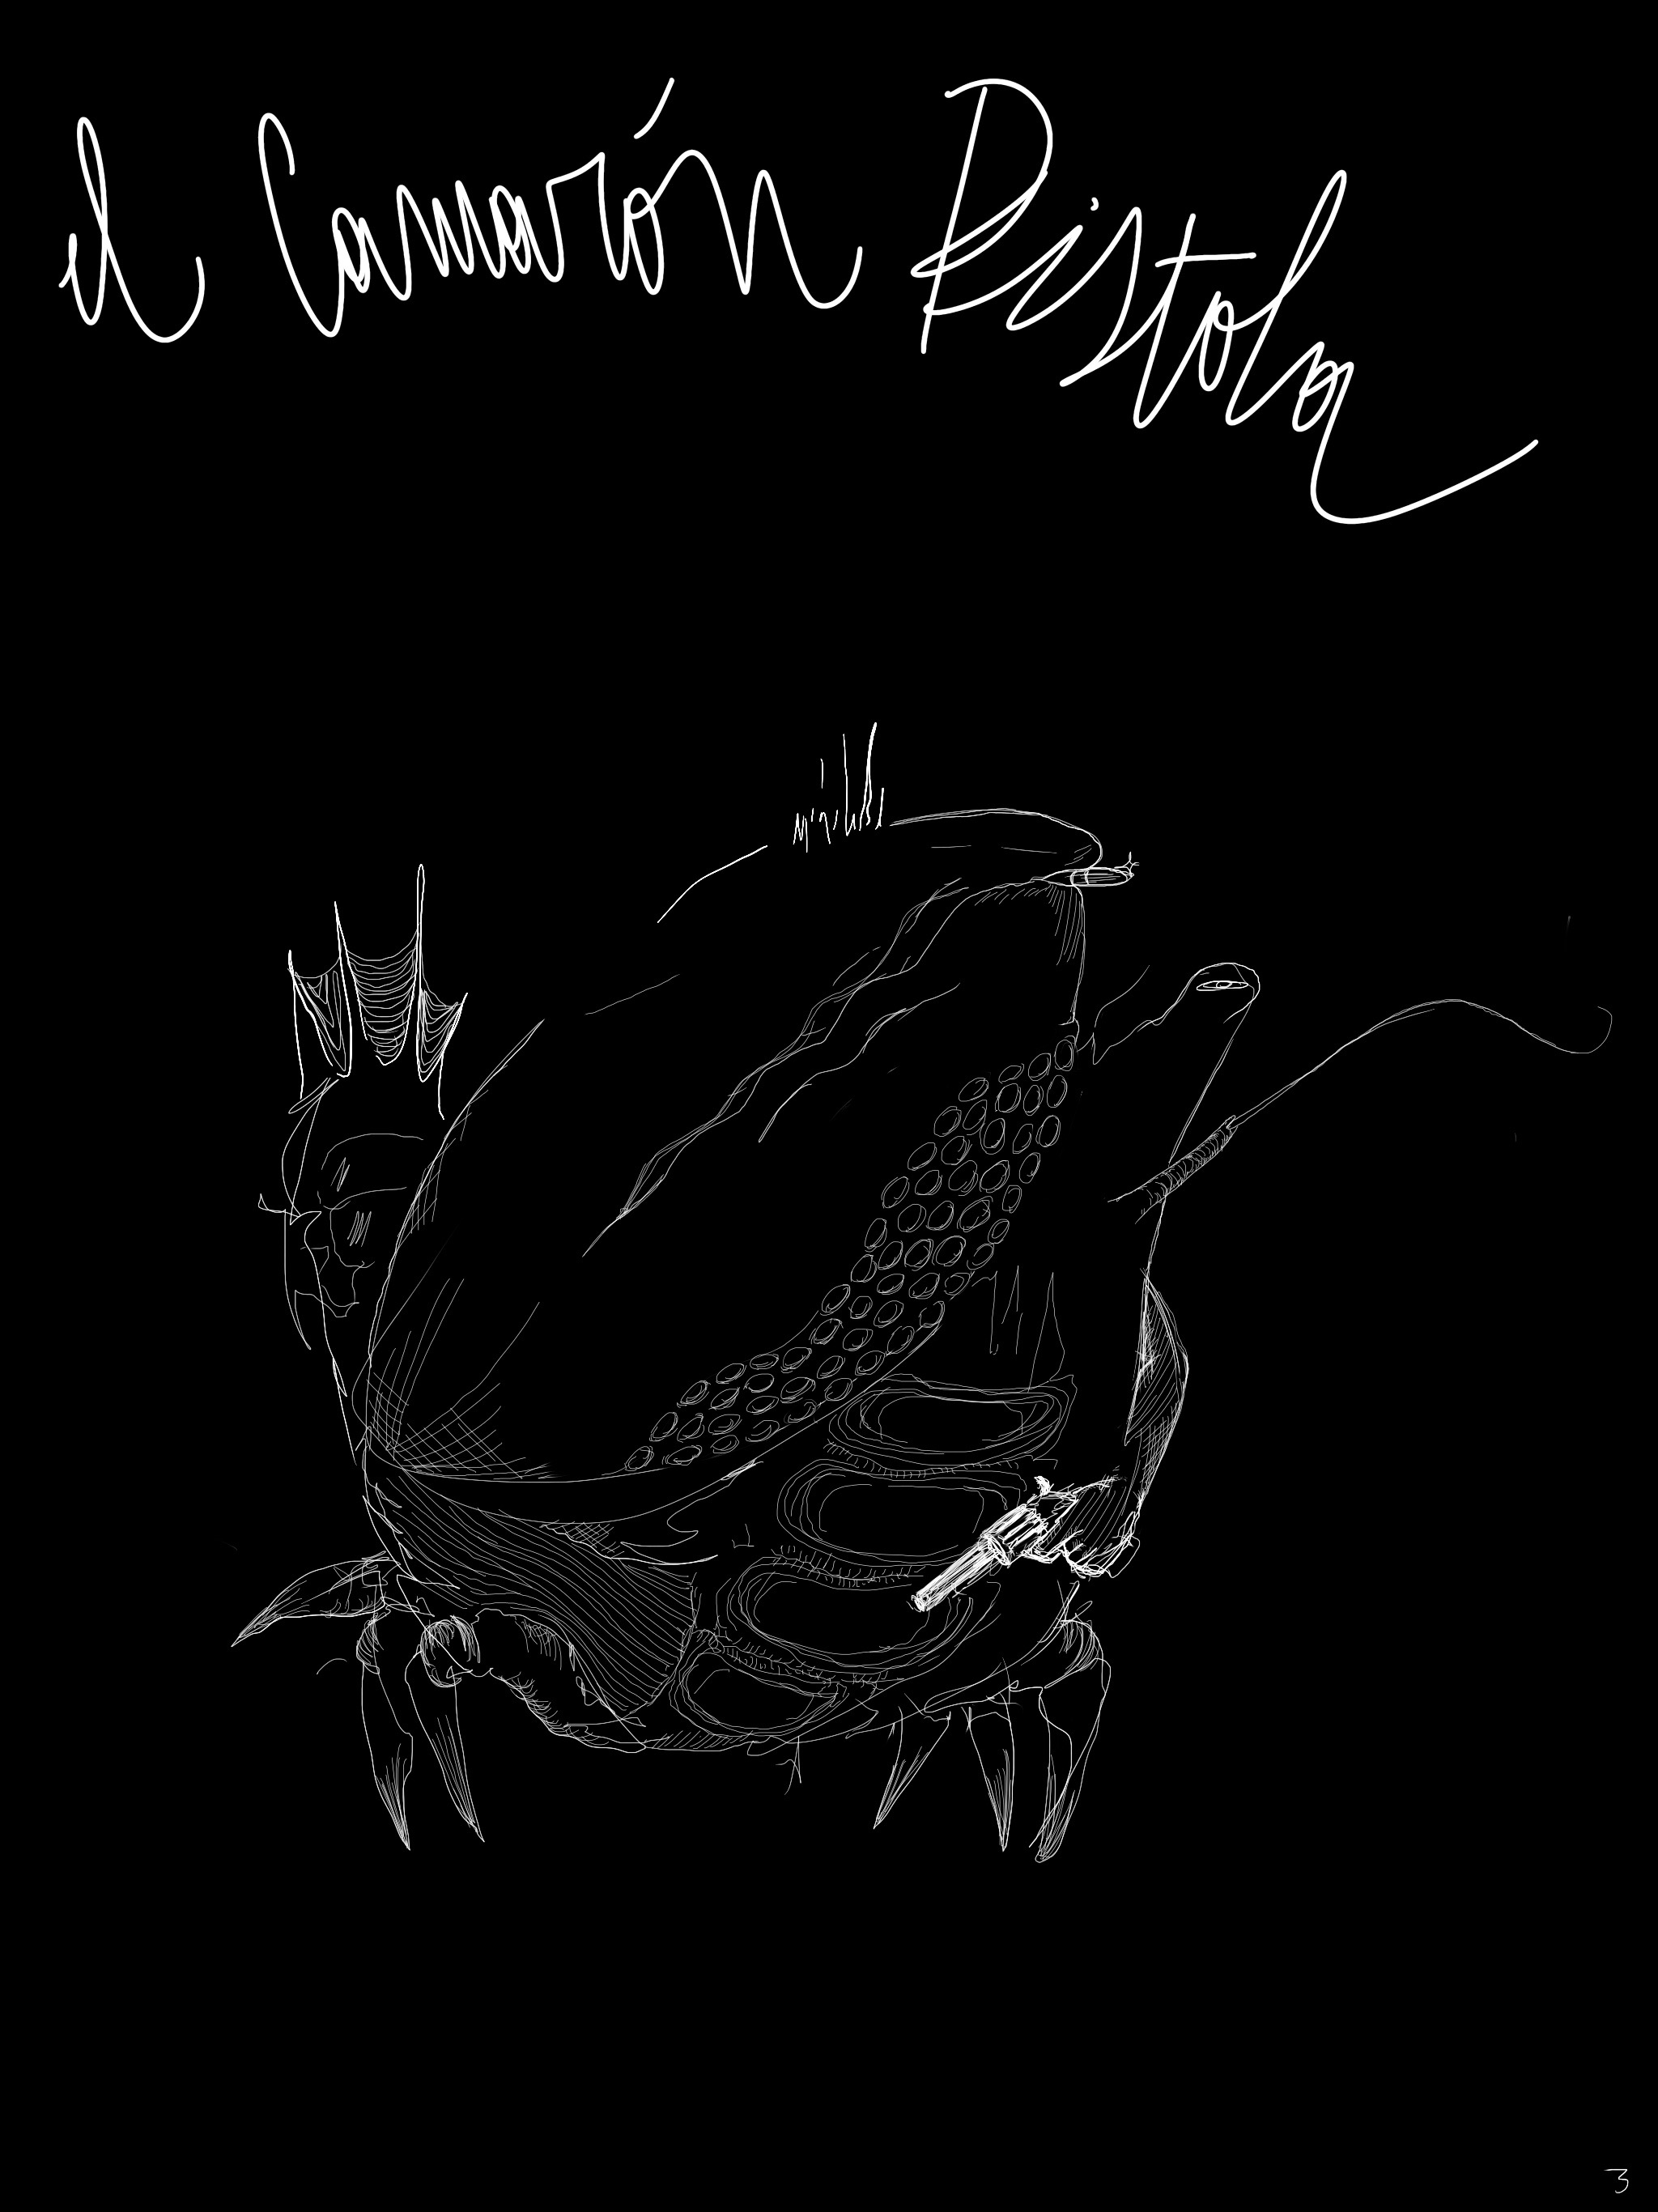 el Camarón Pistola
3